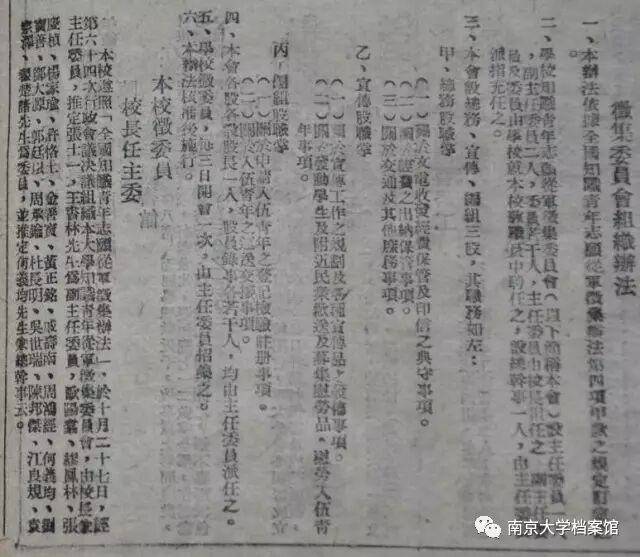 徵集委員會組織辦法
一、本辦法依據全國知識青年志願從軍徵集辦法第四項甲款之規定訂定
之。
二、學校知識青年志願從軍徵集委員會(以下簡稱本會)設主任委員一
，副主任委員二人，委員若干人，主任委員由校長担任之 副主任
員及委員由學校就本校教職員中聘任之，設總幹事一人，由主任委
派指充任之。
三、本會設總務、宣傳、編組三股，其職務如左：
甲、總務股職掌
(一)關於文電收發經費保管及印信之典守事項。
(二)關於經費之出納保管事項。
(三)關於交通及其他庶務事項。
乙、宣傳股職掌
(一)關於宣傳工作之規劃及各種宣傳品之發佈事項。
(二)關於發動學生及附近民衆歡送及募集慰勞品，慰勞入伍青
年事項。
丙、編組股職掌
(一)關於申請入伍青年之登記檢驗註冊事項。
(二)關於入伍青年之運送交接事項。
四、本會各股各設股長一人，股員錄事各若干人，均由主任委員派任之。
五、學校徵委員，每三日開會一次，由主任委員招集之。
六、本辦法核准後施行。
本校徵委員會
校長任主委
本校遵照「全國知識青年志願從軍徵集辦法」，於十月二十七日，經
第六十四次行政會議決議組織本大學知識青年從軍徵集委員會，由校長兼
主任委員，推定張士一、王書林先生爲副主任委員，歐陽翥、繆鳳林、張
慶楨、楊家瑜、許恪士、金善寶、黃正銘、戚壽南、周鴻經、何義均、劉
寶善、鄧大源、郭廷以、周承鑰、杜長明、吳世瑞、陳邦傑、江良規、袁
先生爲委員，並推定何義均先生兼總幹事云。
南京大学档案馆